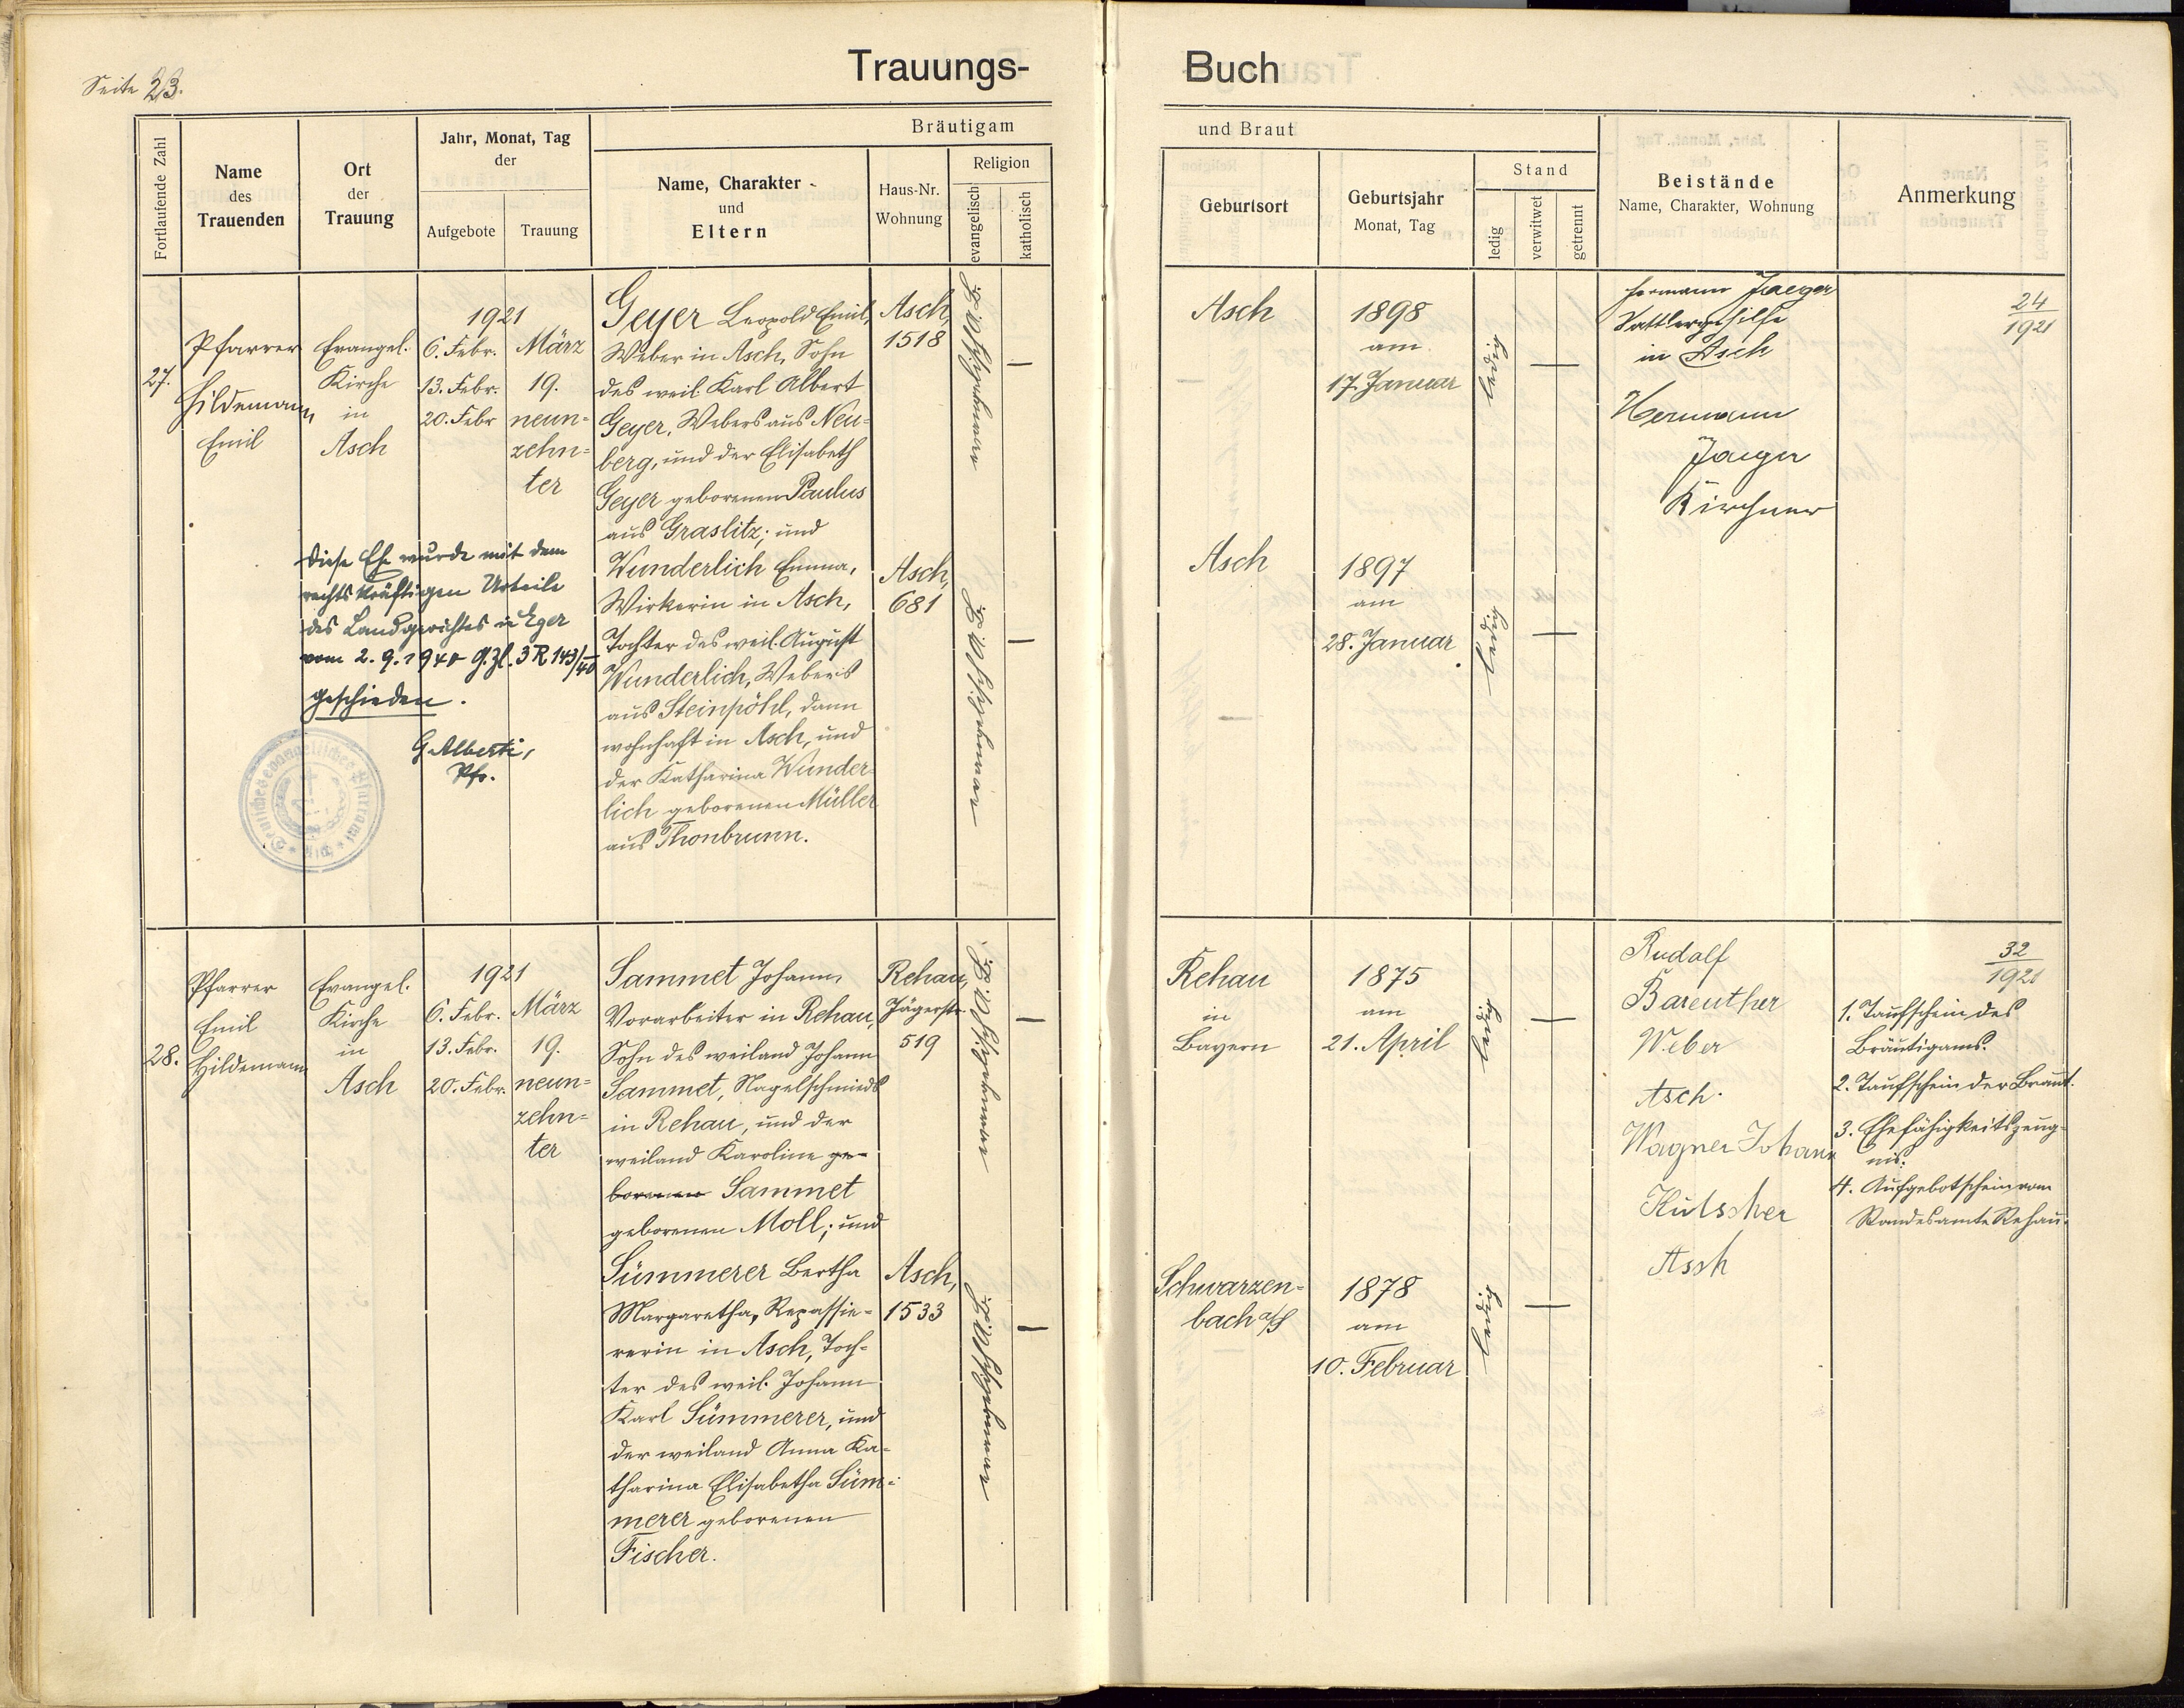 Seite 23.
Trauungs-
Buch
Fortlaufende Zahl
Name
des
Trauenden
Ort
der
Trauung
Jahr, Monat, Tag
der
Aufgebote
Trauung
Bräutigam
Name, Charakter
und
Eltern
Haus-Nr.
Wohnung
Religion
evangelisch
katholisch
und Braut
Geburtsort
Geburtsjahr
Monat, Tag
Stand
ledig
verwitwet
getrennt
Beistände
Name, Charakter, Wohnung
Anmerkung
27.
Pfarrer
Hildemann
Emil
Evangel.
Kirche
in
Asch
1921
6. Febr.
13. Febr.
20. Febr
März
19.
neun=
zehn=
ter
Geyer Leopold Emil,
Weber in Asch, Sohn
des weil. Karl Albert
Geyer, Webers aus Neu=
berg, und der Elisabeth
Geyer geborenen Paulus
aus Graslitz; und
Wunderlich Emma,
Wirkerin in Asch,
Tochter des weil. August
Wunderlich, Webers
aus Steinpöhl, dann
wohnhaft in Asch, und
der Katharina Wunder=
lich geborenen Müller
aus Thonbrunn.
Asch,
1518
Asch,
681
Diese Ehe wurde mit dem
rechtskräftigen Urteile
des Landgerichtes in Eger
vom 2. 9. 1940 G.Zl. 3 R 143/40
geschieden.
G. Alberti,
Pfr.
Deutsches evangelisches Pfarramt
Asch
1898
am
17. Januar
ledig
Asch
1897
am
28. Januar
ledig
Hermann Jaeger
Sattlergehilfe
in Asch
Hermann
Jaeger
Kirchner
24
1921
28.
Pfarrer
Emil
Hildemann
Evangel.
Kirche
in
Asch
1921
6. Febr.
13. Febr.
20. Febr.
März
19.
neun=
zehn=
ter
Sammet Johann,
Vorarbeiter in Rehau,
Sohn des weiland Johann
Sammet, Nagelschmieds
in Rehau, und der
weiland Karoline ge=
borenen Sammet
geborenen Moll; und
Sümmerer Bertha
Margaretha, Repassie=
rerin in Asch, Toch=
ter des weil. Johann
Karl Sümmerer, und
der weiland Anna Ka=
tharina Elisabetha Süm=
merer geborenen
Fischer.
Rehau,
Jägerstr.
519
Asch,
1533
Rehau
in
Bayern
1875
am
21. April
ledig
Schwarzen=
bach a/S
1878
am
10. Februar
ledig
Rudolf
Bareuther
Weber
Asch.
Wagner Johann
Kutscher
Assh
32
1921
1. Taufschein des
Bräutigams.
2. Taufschein der Braut.
3. Ehefähigkeitszeug=
nis.
4. Aufgebotschein vom
Standesamte Rehau.